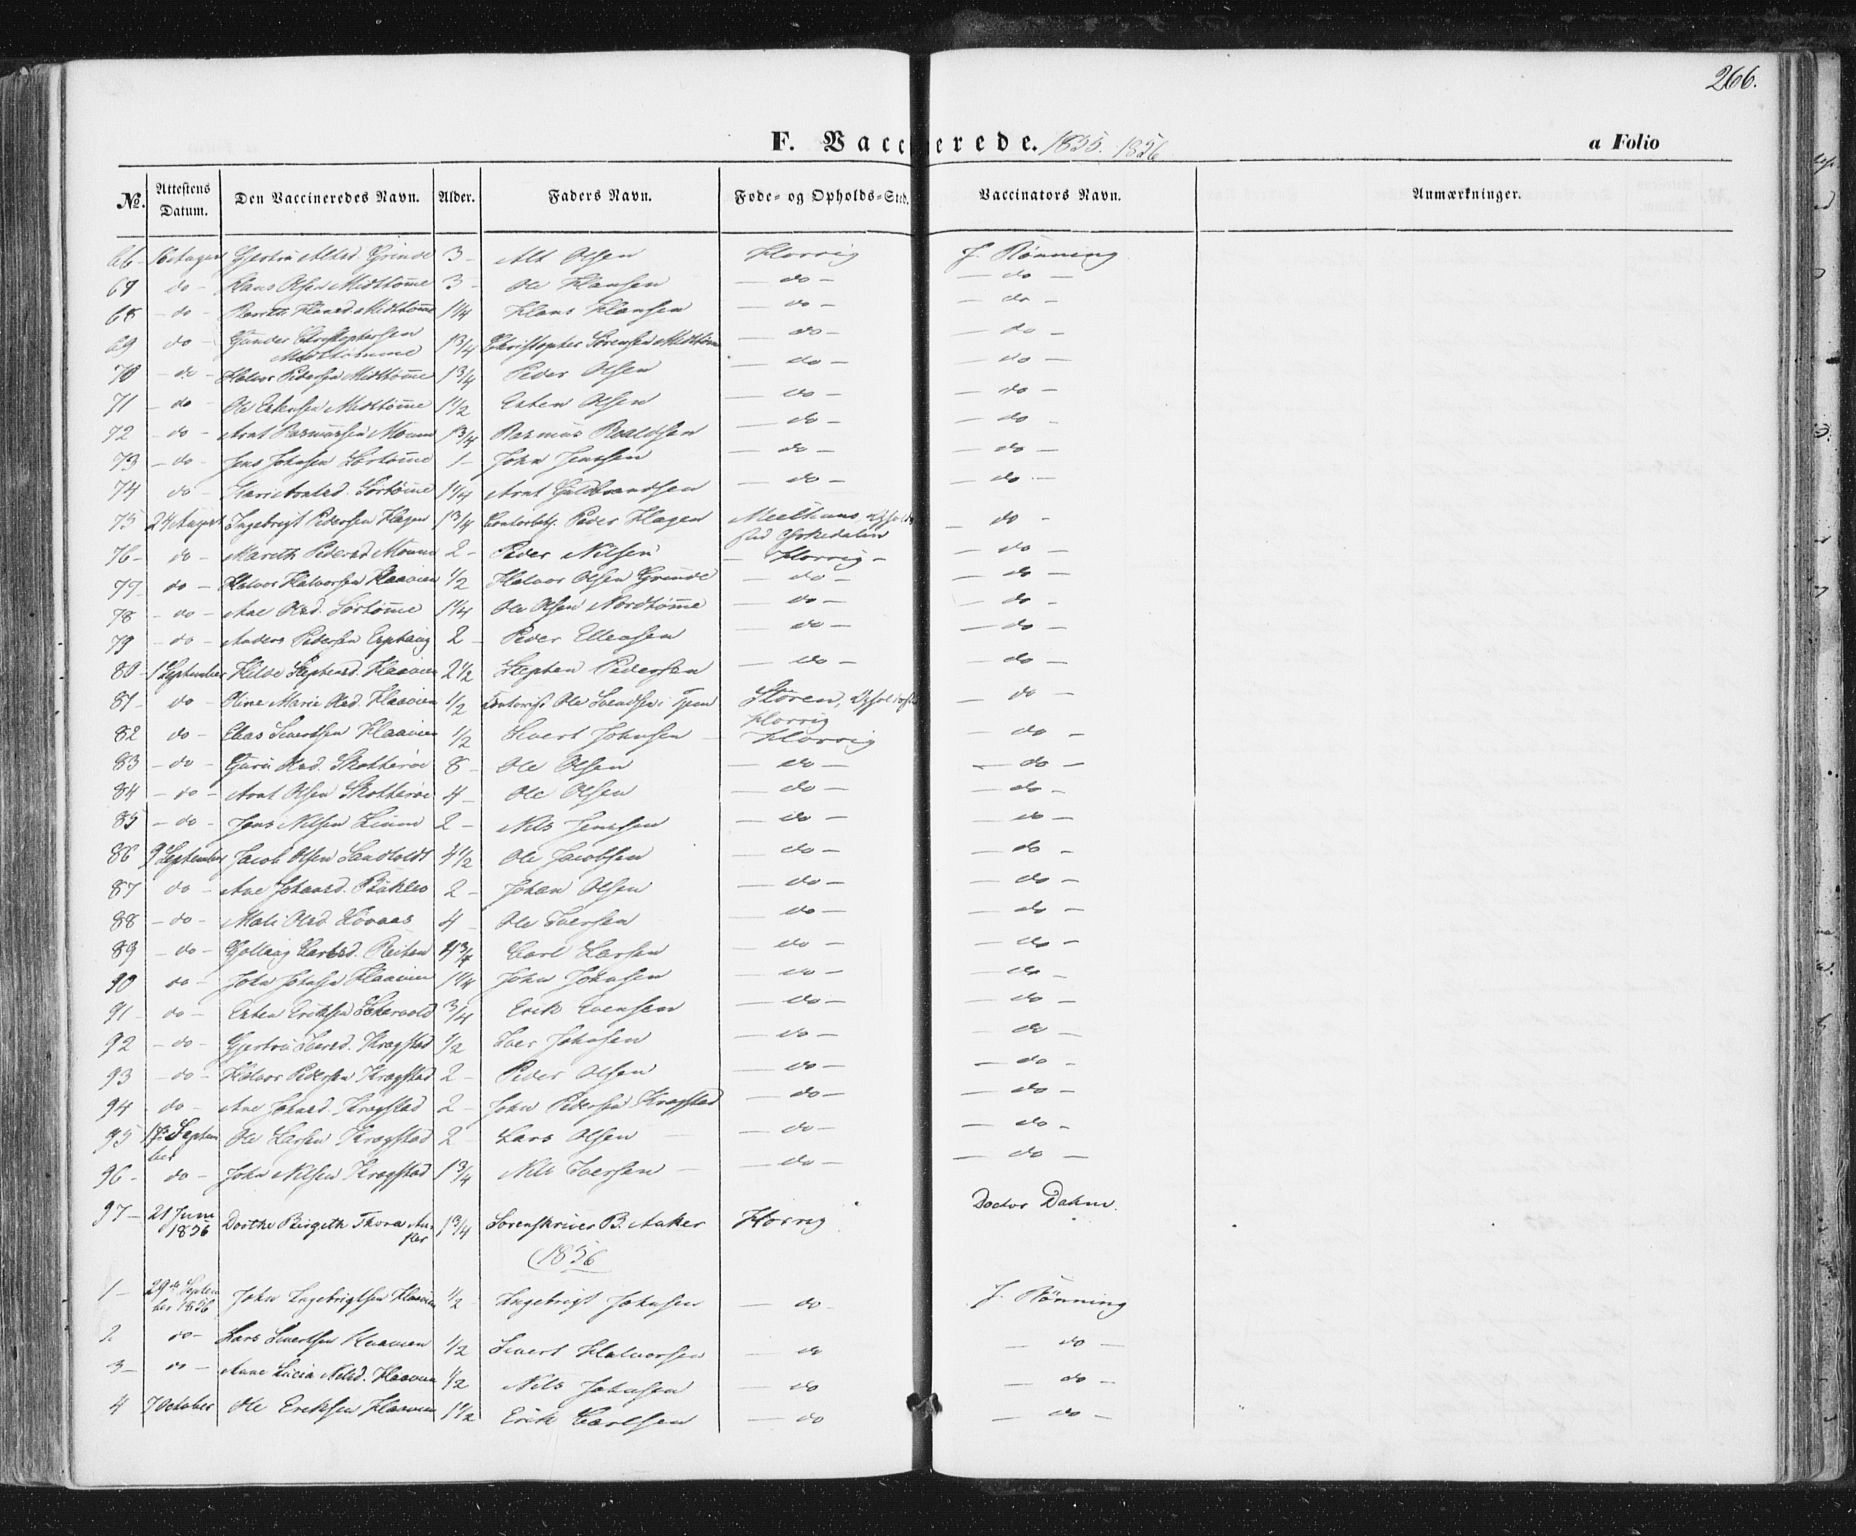 266.
F. Vaccinerede. 1855. 1856
a Folio
No. Attestens Datum. Den Vaccineredes Navn. Alder. Faders Navn. Føde- og Opholds-Sted. Vaccinators Navn. Anmærkninger.
66 - 16 August 3 - Alt Olsen Horrig J. Rønning
67 - do - Hans Olsen Midttømme 3 - Ole Hansen - do - - do -
68 - do - Marith Hansd Midttømme 1 1/4 Hans Hansen - do - - do -
69 do - Gunder Christophersen Midttømme 1 3/4 Christopher Sørensen Midttømme - do - - do -
70 - do - Halvor Pedersen Midttømme 1 3/4 Peder Olsen - do - - do -
71 - do - Ole Estensen Midttømme 1 1/2 Esten Olsen - do - - do -
72 - do - Arnt Rasmussen Moum 1 3/4 Rasmus Roaldsen - do - - do -
73 - do - Jens Johnsen Sørtømme 1 - John Jensen - do - - do -
74 do - Kari Arntsd. Sørtømme 1 1/4 Arnt Guldbrandsen - do - - do -
75 24 August Ingebrigt Pedersen Hagen 1 3/4 Peder Hagen Meelhuus, - do -
sted Orkedalen
76 - do - Marith Pedersd Moum 2 - Peder Nilsen - Horrig - - do -
77 do - Halvor Halvorsen Haavien 1/2 Halvor Olsen Grinde - do - - do -
78 - do - Ane Olsd. Sørtømme 1 1/4 Ole Olsen Nordtømme - do - - do -
79 - do - Anders Pedersen 2 - Peder Ellensen - do - - do -
80 - 1 September Stephensd. Haavien 2 1/2 Stephen Pedersen - do - - do -
81 - do - Oline Marie Olsd. Haavien 1/2 Ole Svendsen Støren, - do -
Horrig
82 do - Claas Sivertsen Haavien 1/2 Sivert Johnsen - Horrig - do -
83 - do - Guru Olsd. Skotterøe 8 - Ole Olsen - do - - do -
84 - do - Arnt Olsen Skotterøe 4 - Ole Olsen - do - - do -
85 - do - Jens Nilsen Lium 2 - Nils Jensen - do - - do -
86 9 September Jacob Olsen 4 1/2 Ole Jacobsen - do - - do -
87 do - Ane Johansd. 2 - Johan Olsen - do - - do -
88 - do - Mali Olsd. 4 - Ole Iversen - do - - do -
89 - do - Carlsd. Reitan 4 3/4 Carl Larsen - do - - do -
90 do - John Johnsen Haavien 1 1/4 John Johnsen - do - - do -
91 - do - Esten Eriksen 3/4 Erik Evensen - do - - do -
92 - do - Gjertru Iversd. Kragstad 1/2 Iver Johnsen - do - - do -
93 - do - Halvor Pedersen Kragstad 2 - Peder Olsen - do - - do -
94 do - Ane Johnsd. Kragstad 2 - John Pedersen Kragstad - do - - do -
95 September Ole Larsen Kragstad 2 - Lars Olsen - - do - - do -
96 - do - John Nilsen Kragstad 1 3/4 Nils Iversen - - do - - do -
97 - 21 Juni 1856 Dorthe Birgith Thora Anker 1 3/4 Sorenskriver B. Anker Horrig Doctor Dahm.
(1856
1 - 29de September 1856 John Ingebrigtsen Haavien 1/2 Ingebrigt Johnsen - do - J. Rønning
2 do - Lars Sivertsen Haavien 1/2 Sivert Halvorsen - do - do -
3 - do - Anne Lucia Nilsd. Haavien 1/2 Nils Johnsen - do - do -
4 7 October Ole Eriksen Haavien 1 1/2 Erik Carlsen - do - do -